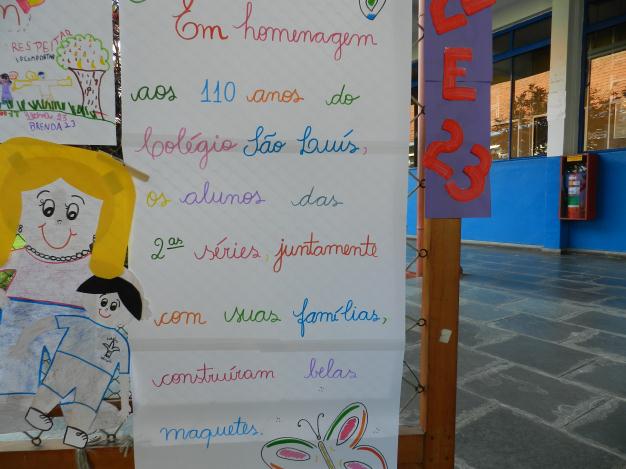 Em homenagem
aos 110 anos do
Colégio São Luís,
os alunos das
2ªs séries, juntamente
com suas famílias,
construíram belas
maquetes.
RESPEITAR
BRENDA 23
CE
E
23